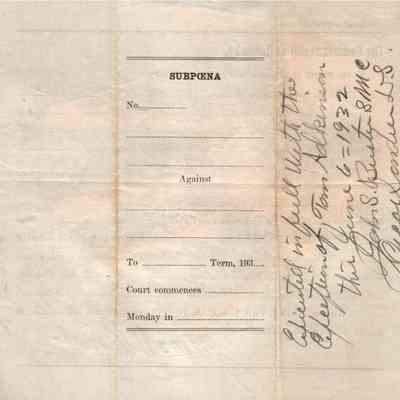 SUBPŒNA
No.
Against
To Term, 193
Court commences
Monday in
Executed in full with the
Exception of Tom Adkinson
this June 6 = 1932
John S. Busty S M C
D. S